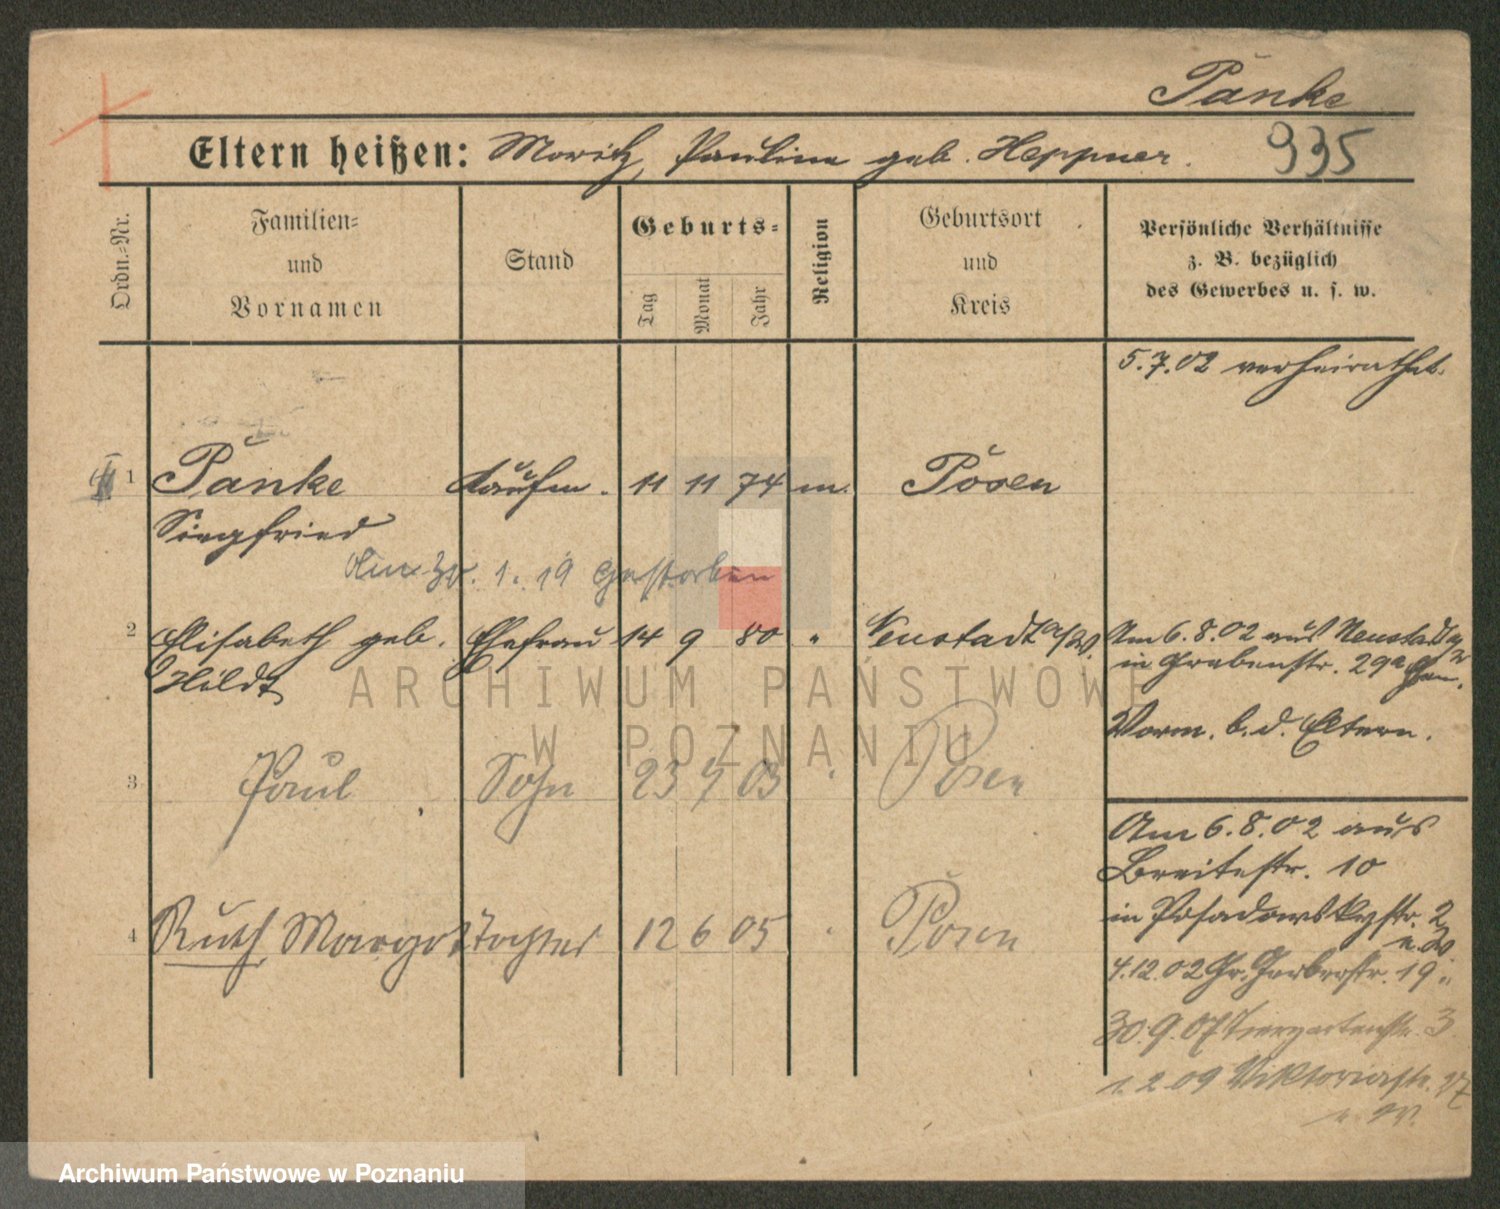 Pänke
Eltern heißen: Moritz, Pauline geb. Heppner.
935
Ordn.-Nr.
Familien-
und
Vornamen
Stand
Geburts-
Tag
Monat
Jahr
Religion
Geburtsort
und
Kreis
Persönliche Verhältnisse
z. B. bezüglich
des Gewerbes u. s. w.
5.7.02 verheirathet.
1 Panke Kaufm. 11 11 74 m. Posen
Siegfried
1. 19 gestorben
2 Elisabeth geb. Ehefrau 14 9 80 " Neustadt a/W.
Hildt
Am 6.8.02 aus Neustadt
in Grabenstr. 29a
Vorm. b. d. Eltern.
3 Paul Sohn 23 7 03 " Posen
Am 6.8.02 aus
Breitestr. 10
in Posadowskystr. 2
u. W.
4 Ruth, Margot Tochter 12 6 05 " Posen
4.12.02 Gr. Gerberstr. 19 "
30.9.07 Tiergartenstr. 3
1.2.09 Viktoriastr. 27
u. W.
ARCHIWUM PAŃSTWOWE
W POZNANIU
Archiwum Państwowe w Poznaniu